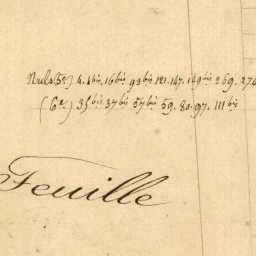 Nuls (5e) 4. 4 bis. 16 bis 93 bis 121. 147. 149 bis 259. 270
(6e) 35 bis 37 bis 57 bis 59. 80. 97. 111 bis
Feuille